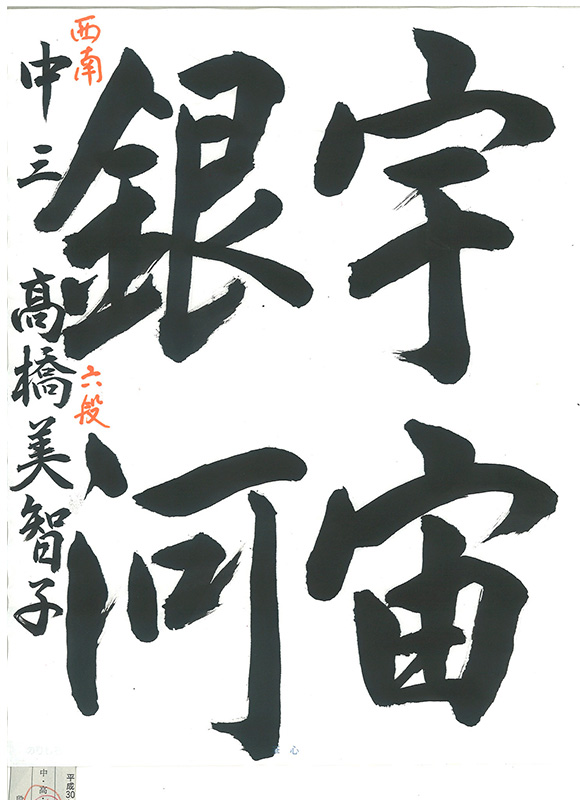 宇宙
銀河
西南
中三 高橋美智子
六段
心
平成30
中・高・
段